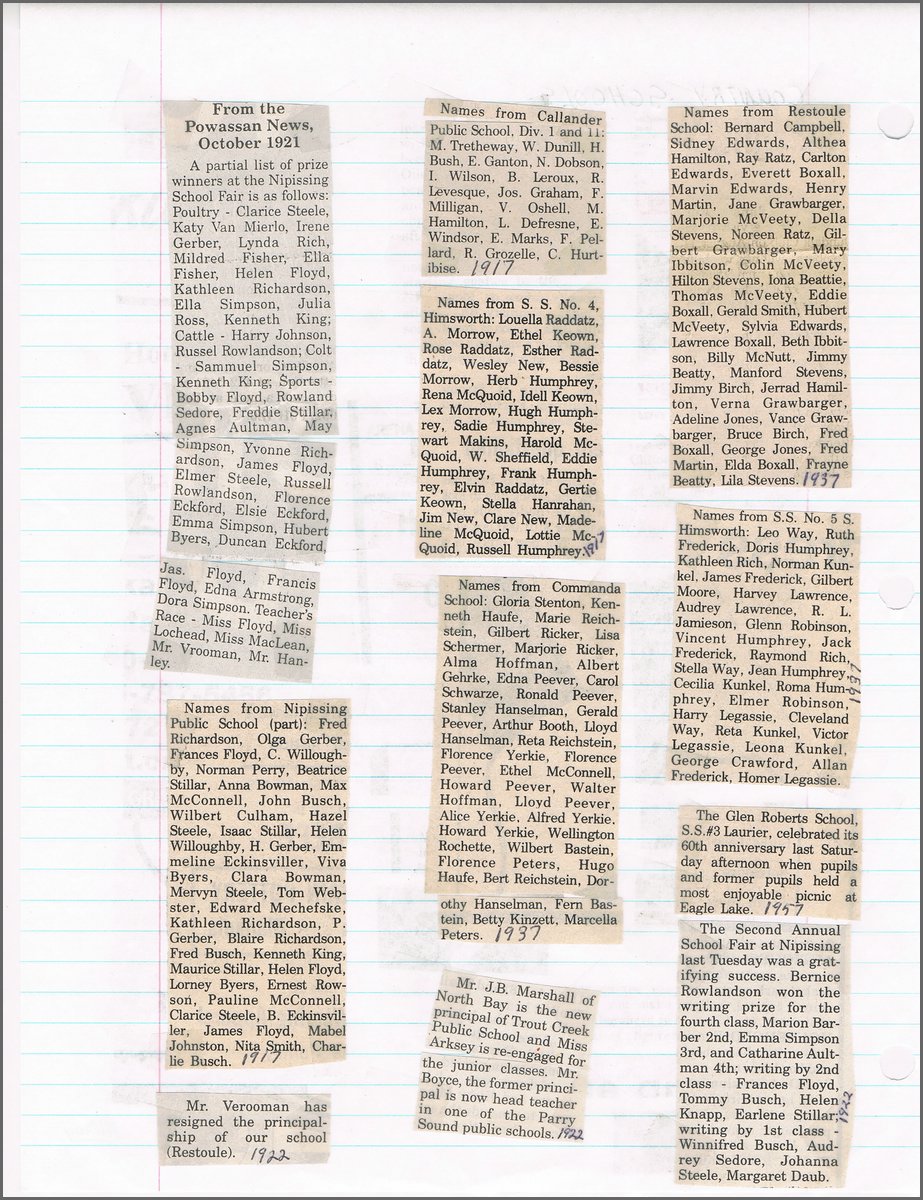 From the
Powassan News,
October 1921
A partial list of prize
winners at the Nipissing
School Fair is as follows:
Poultry - Clarice Steele,
Katy Van Mierlo, Irene
Gerber, Lynda Rich,
Mildred Fisher, Ella
Fisher, Helen Floyd,
Kathleen Richardson,
Ella Simpson, Julia
Ross, Kenneth King;
Cattle - Harry Johnson,
Russel Rowlandson; Colt
- Sammuel Simpson,
Kenneth King; Sports -
Bobby Floyd, Rowland
Sedore, Freddie Stillar,
Agnes Aultman, May
Simpson, Yvonne Rich-
ardson, James Floyd,
Elmer Steele, Russell
Rowlandson, Florence
Eckford, Elsie Eckford,
Emma Simpson, Hubert
Byers, Duncan Eckford,
Jas. Floyd, Francis
Floyd, Edna Armstrong,
Dora Simpson. Teacher's
Race - Miss Floyd, Miss
Lochead, Miss MacLean,
Mr. Vrooman, Mr. Han-
ley.
Names from Nipissing
Public School (part): Fred
Richardson, Olga Gerber,
Frances Floyd, C. Willough-
by, Norman Perry, Beatrice
Stillar, Anna Bowman, Max
McConnell, John Busch,
Wilbert Culham, Hazel
Steele, Isaac Stillar, Helen
Willoughby, H. Gerber, Em-
meline Eckinsviller, Viva
Byers, Clara Bowman,
Mervyn Steele, Tom Web-
ster, Edward Mechefske,
Kathleen Richardson, P.
Gerber, Blaire Richardson,
Fred Busch, Kenneth King,
Maurice Stillar, Helen Floyd,
Lorney Byers, Ernest Row-
son, Pauline McConnell,
Clarice Steele, B. Eckinsvil-
ler, James Floyd, Mabel
Johnston, Nita Smith, Char-
lie Busch. 1917
Mr. Verooman has
resigned the principal-
ship of our school
(Restoule). 1922
Names from Callander
Public School, Div. 1 and 11:
M. Tretheway, W. Dunill, H.
Bush, E. Ganton, N. Dobson,
I. Wilson, B. Leroux, R.
Levesque, Jos. Graham, F.
Milligan, V. Oshell, M.
Hamilton, L. Defresne, E.
Windsor, E. Marks, F. Pel-
lard, R. Grozelle, C. Hurt-
ibise. 1917
Names from S. S. No. 4,
Himsworth: Louella Raddatz,
A. Morrow, Ethel Keown,
Rose Raddatz, Esther Rad-
datz, Wesley New, Bessie
Morrow, Herb Humphrey,
Rena McQuoid, Idell Keown,
Lex Morrow, Hugh Humph-
rey, Sadie Humphrey, Ste-
wart Makins, Harold Mc-
Quoid, W. Sheffield, Eddie
Humphrey, Frank Humph-
rey, Elvin Raddatz, Gertie
Keown, Stella Hanrahan,
Jim New, Clare New, Made-
line McQuoid, Lottie Mc-
Quoid, Russell Humphrey. 1917
Names from Commanda
School: Gloria Stenton, Ken-
neth Haufe, Marie Reich-
stein, Gilbert Ricker, Lisa
Schermer, Marjorie Ricker,
Alma Hoffman, Albert
Gehrke, Edna Peever, Carol
Schwarze, Ronald Peever,
Stanley Hanselman, Gerald
Peever, Arthur Booth, Lloyd
Hanselman, Reta Reichstein,
Florence Yerkie, Florence
Peever, Ethel McConnell,
Howard Peever, Walter
Hoffman, Lloyd Peever,
Alice Yerkie, Alfred Yerkie,
Howard Yerkie, Wellington
Rochette, Wilbert Bastein,
Florence Peters, Hugo
Haufe, Bert Reichstein, Dor-
othy Hanselman, Fern Bas-
tein, Betty Kinzett, Marcella
Peters. 1937
Mr. J.B. Marshall of
North Bay is the new
principal of Trout Creek
Public School and Miss
Arksey is re-engaged for
the junior classes. Mr.
Boyce, the former princi-
pal is now head teacher
in one of the Parry
Sound public schools. 1922
Names from Restoule
School: Bernard Campbell,
Sidney Edwards, Althea
Hamilton, Ray Ratz, Carlton
Edwards, Everett Boxall,
Marvin Edwards, Henry
Martin, Jane Grawbarger,
Marjorie McVeety, Della
Stevens, Noreen Ratz, Gil-
bert Grawbarger, Mary
Ibbitson, Colin McVeety,
Hilton Stevens, Iona Beattie,
Thomas McVeety, Eddie
Boxall, Gerald Smith, Hubert
McVeety, Sylvia Edwards,
Lawrence Boxall, Beth Ibbit-
son, Billy McNutt, Jimmy
Beatty, Manford Stevens,
Jimmy Birch, Jerrad Hamil-
ton, Verna Grawbarger,
Adeline Jones, Vance Graw-
barger, Bruce Birch, Fred
Boxall, George Jones, Fred
Martin, Elda Boxall, Frayne
Beatty, Lila Stevens. 1937
Names from S.S. No. 5 S.
Himsworth: Leo Way, Ruth
Frederick, Doris Humphrey,
Kathleen Rich, Norman Kun-
kel, James Frederick, Gilbert
Moore, Harvey Lawrence,
Audrey Lawrence, R. L.
Jamieson, Glenn Robinson,
Vincent Humphrey, Jack
Frederick, Raymond Rich,
Stella Way, Jean Humphrey,
Cecilia Kunkel, Roma Hum-
phrey, Elmer Robinson,
Harry Legassie, Cleveland
Way, Reta Kunkel, Victor
Legassie, Leona Kunkel,
George Crawford, Allan
Frederick, Homer Legassie.
1937
The Glen Roberts School,
S.S.#3 Laurier, celebrated its
60th anniversary last Satur-
day afternoon when pupils
and former pupils held a
most enjoyable picnic at
Eagle Lake. 1957
The Second Annual
School Fair at Nipissing
last Tuesday was a grat-
ifying success. Bernice
Rowlandson won the
writing prize for the
fourth class, Marion Bar-
ber 2nd, Emma Simpson
3rd, and Catharine Ault-
man 4th; writing by 2nd
class - Frances Floyd,
Tommy Busch, Helen
Knapp, Earlene Stillar;
writing by 1st class -
Winnifred Busch, Aud-
rey Sedore, Johanna
Steele, Margaret Daub.
1922